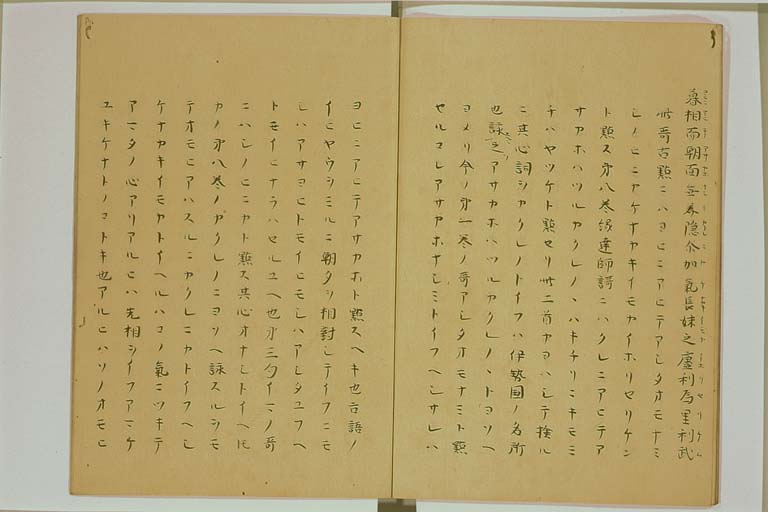 暮相而朝面無美隠尓加氣長妹之廬利為里利武
此哥古點ニハヨヒニアヒテアシタオモナミ
シノヒニカケナカキイモカイホリセリケン
ト點ス 第八巻縁達師謌ニハクレニアヒテア
サカホハツルカクレノヽハキチリニキモミ
チハヤツケト點セリ此二首カヨハシテ検ル
ニ其心詞シカクレノトイフハ伊勢國ノ名所
也詠之アサカホハツルカクレノヽトヨソヘ
ヨメリ今ノ第一巻ノ哥アシタオモナミト點
セルコレアサカホナシミトイフヘシサレハ
ヨヒニアヒテアサカホト點スヘキ也古語ノ
イヒヤウシミルニ朝夕シ相對シテイフニモ
シハアサヨヒトモイヒモシハアシタユフヘ
トモイヒナラハセルユヘ也第三句イマノ哥
ニハシノヒニカト點ス其心オナシトイヘ𪜈
カノ第八巻ノカクレノニヨソヘ詠スルシモ
テオモヒアハスルニカクレニカトイフヘシ
ケナカキイモカトイヘルハコノ氣ニツキテ
アマタノ心アリアルヒハ先相シイフアマケ
ユキケナトノコトキ也アルヒハソノオモヒ